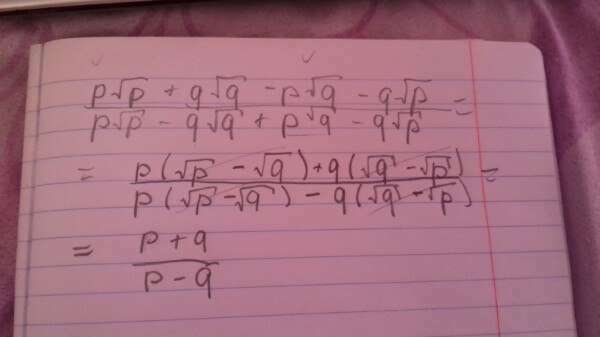 (p√p + q√q - p√q - q√p) / (p√p - q√q + p√q - q√p) =
= (p(√p - √q) + q(√q - √p)) / (p(√p - √q) - q(√q - √p)) =
= (p + q) / (p - q)